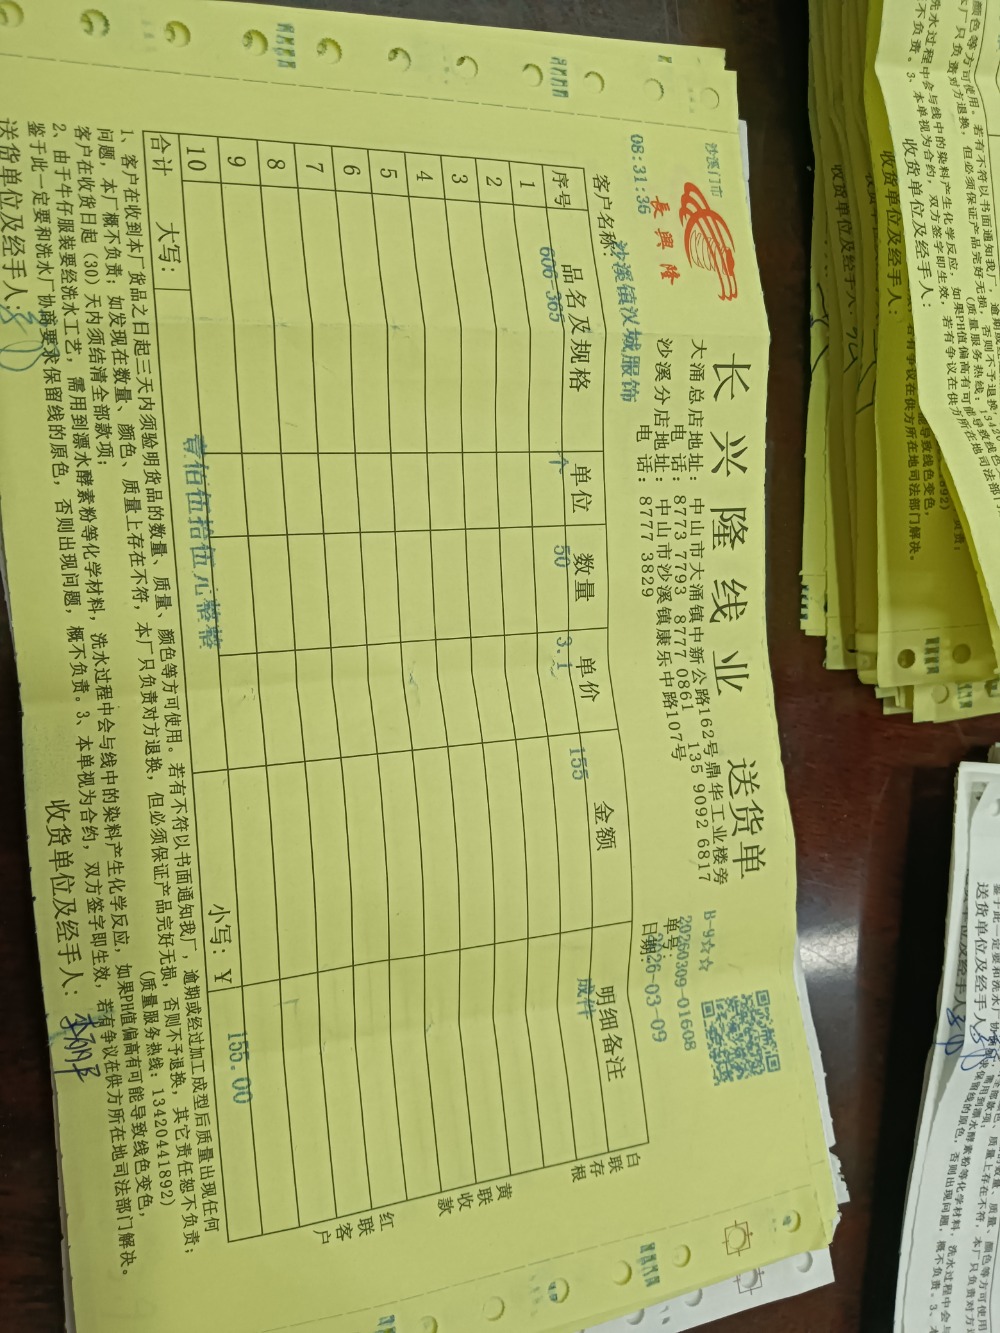 沙溪门市
08:31:36
長興隆
长兴隆线业 送货单
大涌总店地址：中山市大涌镇中新公路162号鼎华工业楼旁
电话：8773 7793 8777 0861 135 9092 6817
沙溪分店地址：中山市沙溪镇康乐中路107号
电话：8777 3829
B-9☆☆
单号：20260309-01608
日期：2026-03-09
客户名称：沙溪镇汉城服饰
序号 品名及规格 单位 数量 单价 金额 明细备注
1 606-365 个 50 3.1 155 成件
2
3
4
5
6
7
8
9
10
合计 大写：壹佰伍拾伍元整整 小写：￥ 155.00
白联存根
黄联收款
红联客户
1、客户在收到本厂货品之日起三天内须验明货品的数量、质量、颜色等方可使用。若有不符以书面通知我厂，逾期或经过加工成型后质量出现任何
问题，本厂概不负责；如发现在数量、颜色、质量上存在不符，本厂只负责对方退换，但必须保证产品完好无损，否则不予退换，其它责任恕不负责；
客户在收货日起（30）天内须结清全部款项； （质量服务热线：13420441892）
2、由于牛仔服装要经洗水工艺，需用到漂水酵素粉等化学材料，洗水过程中会与线中的染料产生化学反应，如果PH值偏高有可能导致线色变色，
鉴于此一定要和洗水厂协商要求保留线的原色，否则出现问题，概不负责。3、本单视为合约，双方签字即生效，若有争议在供方所在地司法部门解决。
送货单位及经手人： 收货单位及经手人：
收货单位及经手人：
收货单位及经手人：
收货单位及经手人：
送货单位及经手人